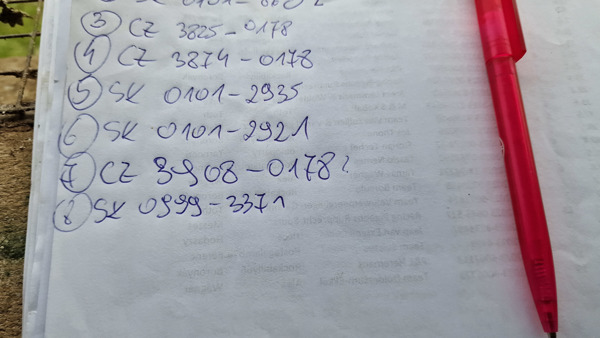 ③ CZ 3825-0178
④ CZ 3874-0178
⑤ SK 0101-2935
⑥ SK 0101-2921
⑦ CZ 3908-0178?
⑧ SK 0999-3371